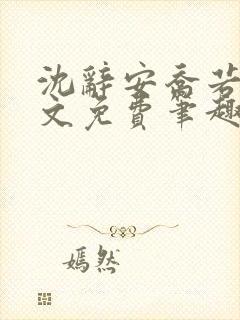 沈辭安喬若
文免費筆趣
嫣然